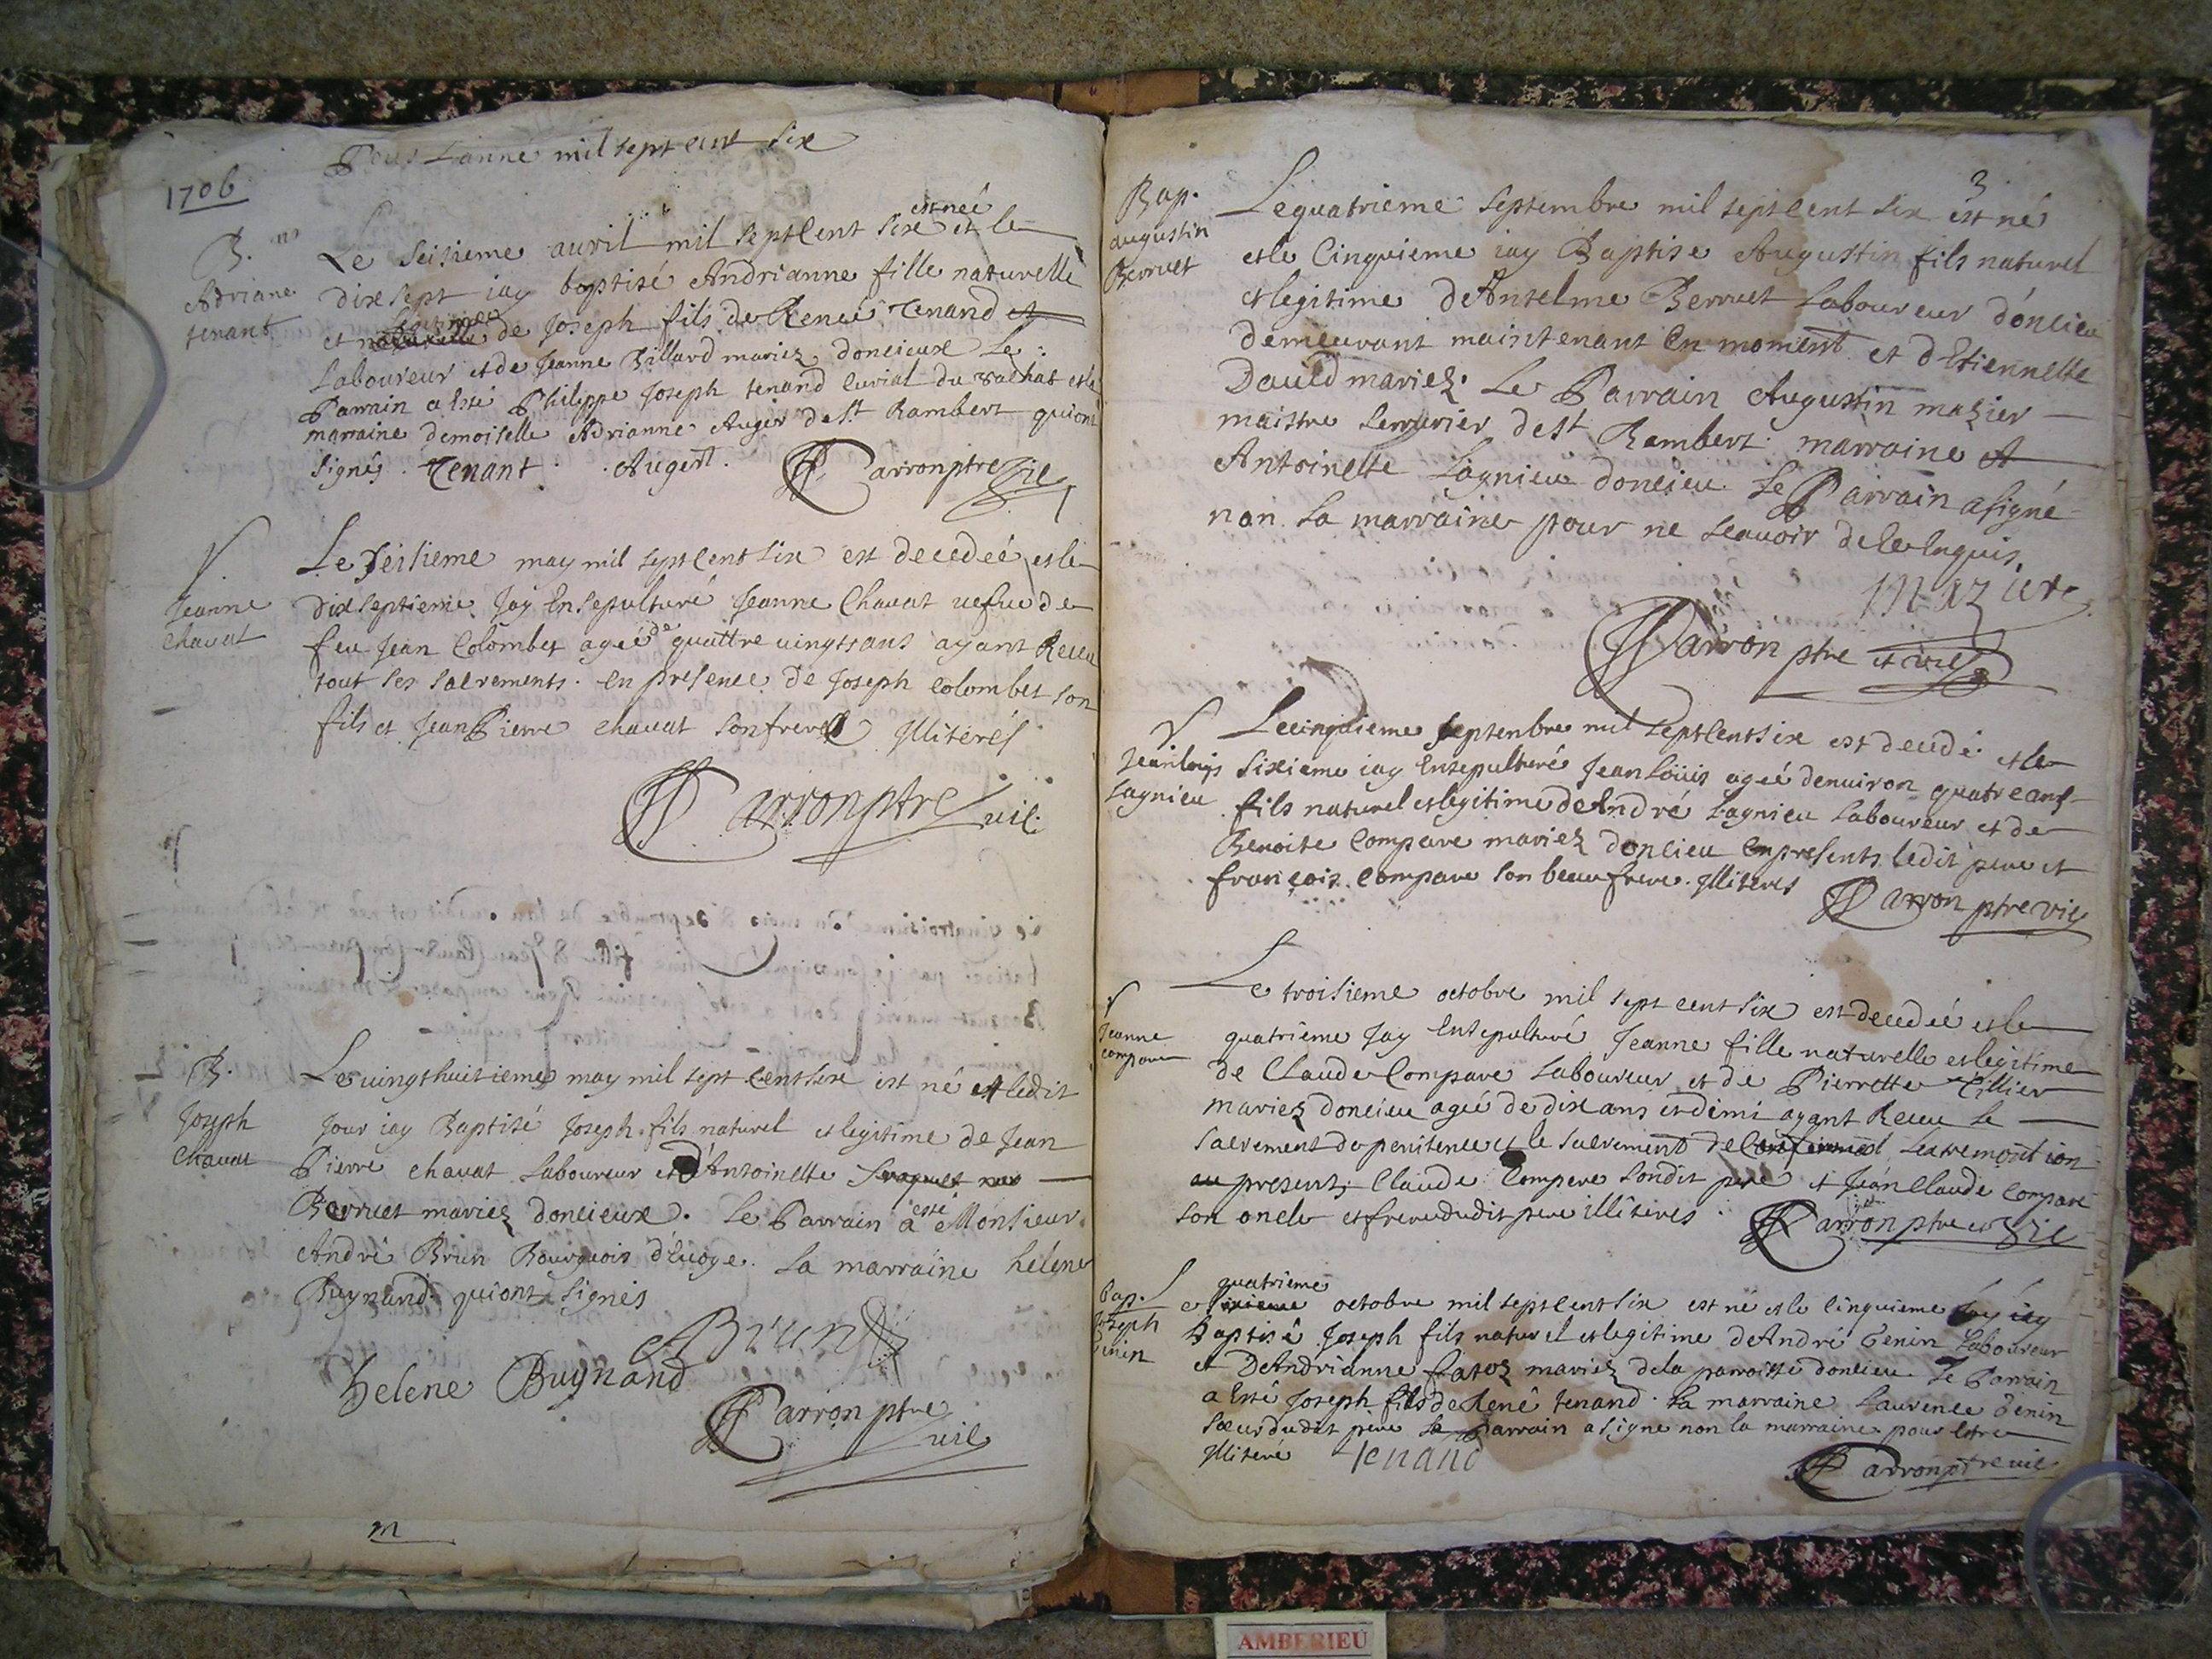 Pour Lanne mil sept cent six
1706
B.
Adriane
tenant
Le seisieme auril mil sept Cent six est née et le
dixsept iay baptisé Andrianne fille naturelle
et legitimee de Joseph fils de Renee Tenand et
Laboureur et de Jeanne Billard mariez doncieux Le
Parrain a esté Philippe Joseph tenand Curial du et la
marraine demoiselle Adrianne Auger de St Rambert qui ont
signés. Tenant. Augert. Carron ptre vic
V.
Jeanne
Chauat
Le seisieme may mil sept Cent six est decedeé et le
dixseptieme Jay Ensepulturé Jeanne Chauat uefue de
feu Jean Colombet ageé de quattre uingts ans ayant Receu
tout ses sacrements. en presence de Joseph Colombet son
fils et Jean Pierre chauat son frere Illiterés
Carron ptre
uic.
B.
Joseph
Chauat
Le uingthuitieme may mil sept Cent six est né et ledit
Jour iay Baptisé Joseph fils naturel et legitime de Jean
Pierre chauat Laboureur et d'Antoinette
Berruet mariez doncieux. Le Parrain a esté Monsieur
André Brun Bourgeois d'Euoge. La marraine heléne
Buynand qui ont signés
Brun
Helene Buynand
Carron ptre
uic
m
3
Bap.
augustin
Berruet
Le quatrieme septembre mil sept Cent six est né
et le Cinquieme iay Baptise Augustin fils naturel
et legitime d'Antelme Berruet Laboureur d'oncieu
demeurant maintenant en moment et d'Etiennette
Dauid mariez. Le Parrain Augustin mazier
maistre serrurier de st Rambert marraine et
Antoinette Lagnieu doncieu Le Parrain a signé
non la marraine pour ne scauoir de ce Enquis
Mazier
Carron ptre et vic
V
Jean loüis
Lagnieu
Le cinquieme septenbre mil sept Cent six est decedé et le
sixieme iay Ensepulturé Jean Loüis ageé denuiron quatre ans
fils naturel et legitime de André Lagnieu Laboureur et de
Benoite Compare mariez doncieu en presents ledit pere et
françois Compare son beau frere. Illiterés Carron ptre vic
V
Jeanne
compare
Le troisieme octobre mil sept cent six est decedeé et le
quatrieme Jay Ensepulturé Jeanne fille naturelle et legitime
de Claude Compare Laboureur et de Pierrette Tillier
mariez doncieu ageé de dix ans et demi ayant Receu le
sacrement de penitence et le sacrement de Lextremontion
au present; Claude Compere sondit pere et Jean Claude Compare
son oncle et frere dudit pere illiterés. Carron ptre et vic
bap.
Joseph
Genin
Le quatrieme octobre mil sept Cent six est né et le Cinquieme iay
Baptisé Joseph fils naturel et legitime de André Genin Laboureur
et DeAndrianne mariez dela parroisse doncieu Le Parrain
a Esté Joseph fils de René tenand. La marraine Laurence Genin
sœur dudit pere Le Parrain a signe non la marraine pour estre
Illiteré Tenand Carron ptre uic
AMBERIEU